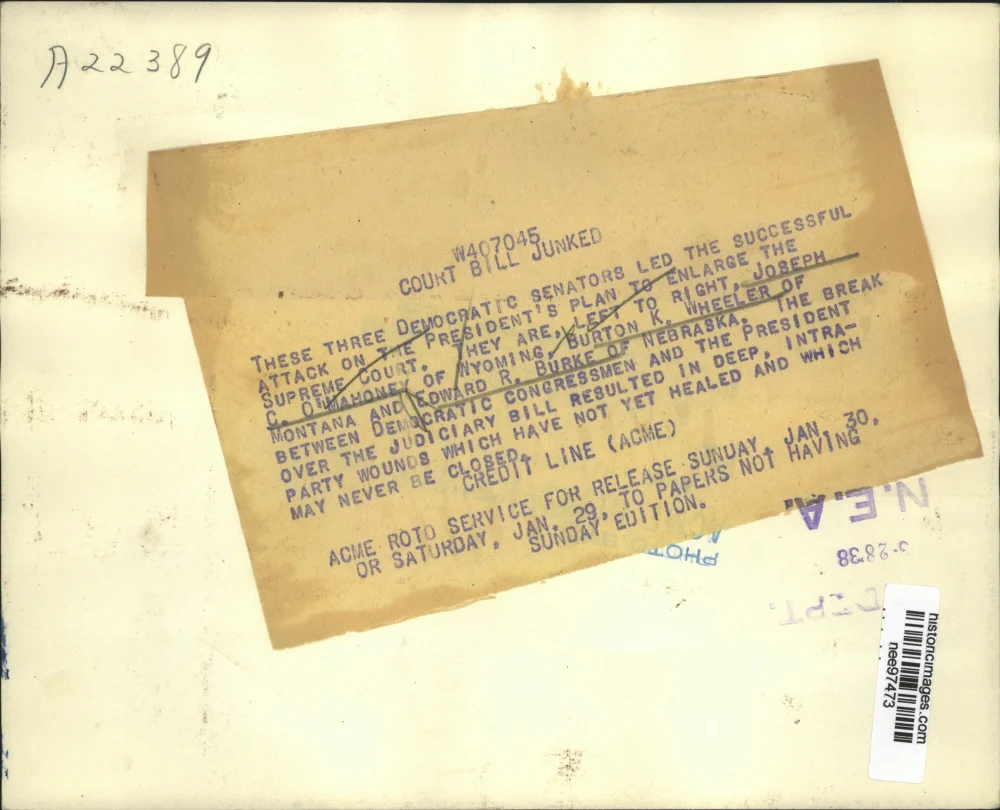 A22389
W407045
COURT BILL JUNKED
THESE THREE DEMOCRATIC SENATORS LED THE SUCCESSFUL
ATTACK ON THE PRESIDENT'S PLAN TO ENLARGE THE
SUPREME COURT. THEY ARE, LEFT TO RIGHT, JOSEPH
C. O'MAHONEY OF WYOMING, BURTON K. WHEELER OF
MONTANA AND EDWARD R. BURKE OF NEBRASKA. THE BREAK
BETWEEN DEMOCRATIC CONGRESSMEN AND THE PRESIDENT
OVER THE JUDICIARY BILL RESULTED IN DEEP, INTRA-
PARTY WOUNDS WHICH HAVE NOT YET HEALED AND WHICH
MAY NEVER BE CLOSED.
CREDIT LINE (ACME)
ACME ROTO SERVICE FOR RELEASE SUNDAY, JAN. 30,
OR SATURDAY, JAN. 29, TO PAPERS NOT HAVING
SUNDAY EDITION.
N.E.A.
2838
DEPT.
historicimages.com
nee97473